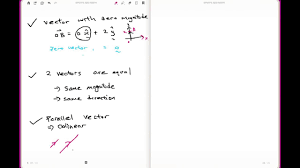 vector with zero magnitude
zero vector = 0
2 vectors are equal
→ same magnitude
→ same direction
Parallel vector
→ colinear